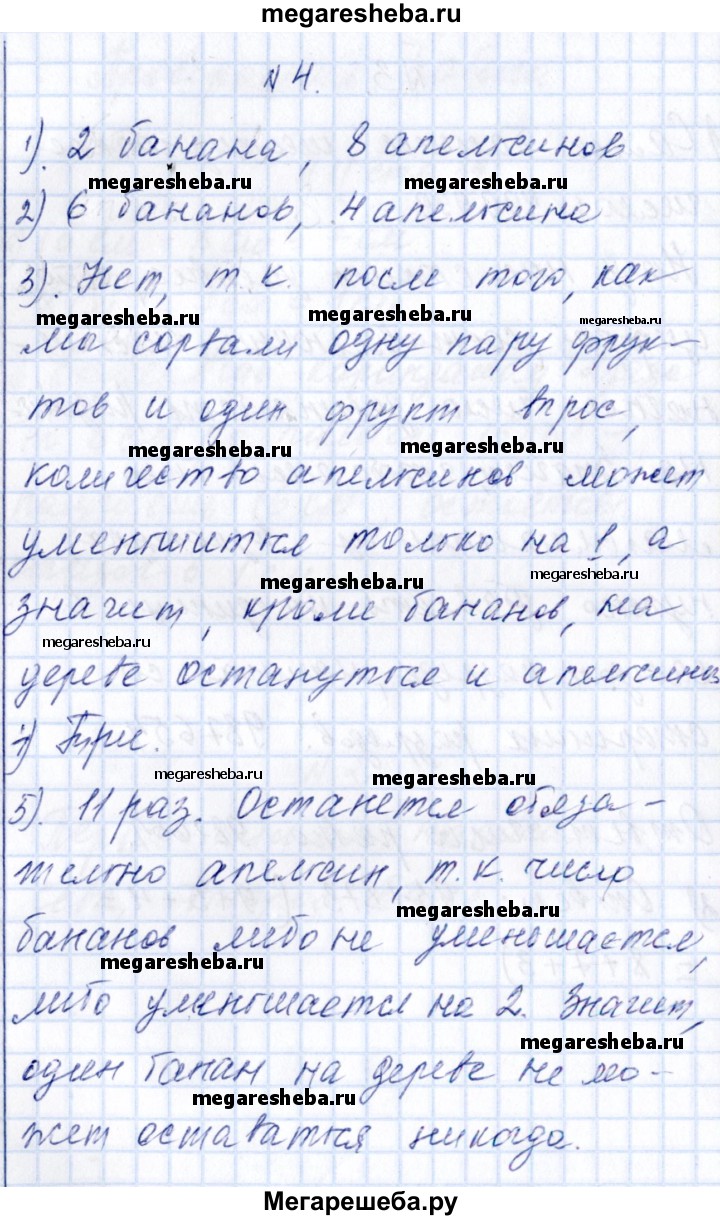 megaresheba.ru
№ 4.
1). 2 банана, 8 апельсинов
megaresheba.ru megaresheba.ru
2) 6 бананов, 4 апельсина
3). Нет, т.к. после того, как
megaresheba.ru megaresheba.ru megaresheba.ru
мы сорвали одну пару фрук-
тов и один фрукт врос,
megaresheba.ru megaresheba.ru
количество апельсинов может
уменьшиться только на 1, а
megaresheba.ru megaresheba.ru
значит, кроме бананов, на
megaresheba.ru
дереве останутся и апельсины
4) Три.
megaresheba.ru megaresheba.ru
5). 11 раз. Останется обяза-
тельно апельсин, т.к. число
megaresheba.ru
бананов либо не уменьшается,
megaresheba.ru
либо уменьшается на 2. Значит,
megaresheba.ru
один банан на дереве не мо-
megaresheba.ru
жет оставаться никогда.
Мегарешеба.ру